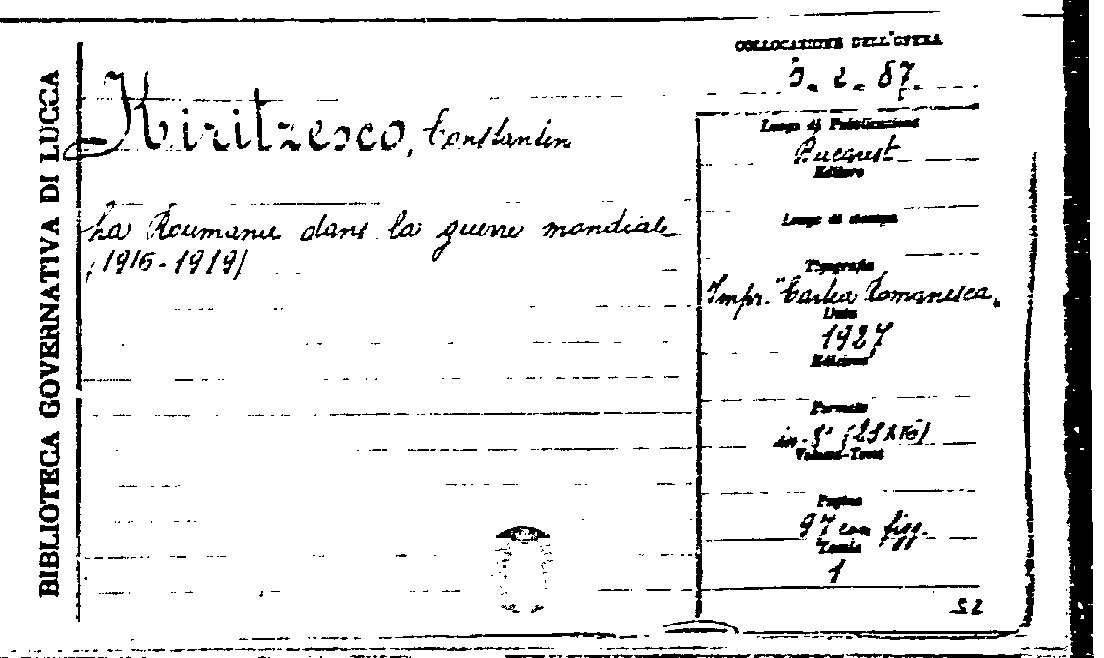 BIBLIOTECA GOVERNATIVA DI LUCCA
Kiritzesco, Constantin
La Roumanie dans la guerre mondiale
(1916-1919)
COLLOCAZIONE DELL'OPERA
2. 87.
Luogo di Pubblicazione
Bucarest
Editore
Luogo di stampa
Tipografia
Impr. "Cartea Romanesca,
Data
1927
Edizione
Formato
in-8° (25x16)
Volume-Tomi
Pagine
97 con figg.
Tomie
1
52